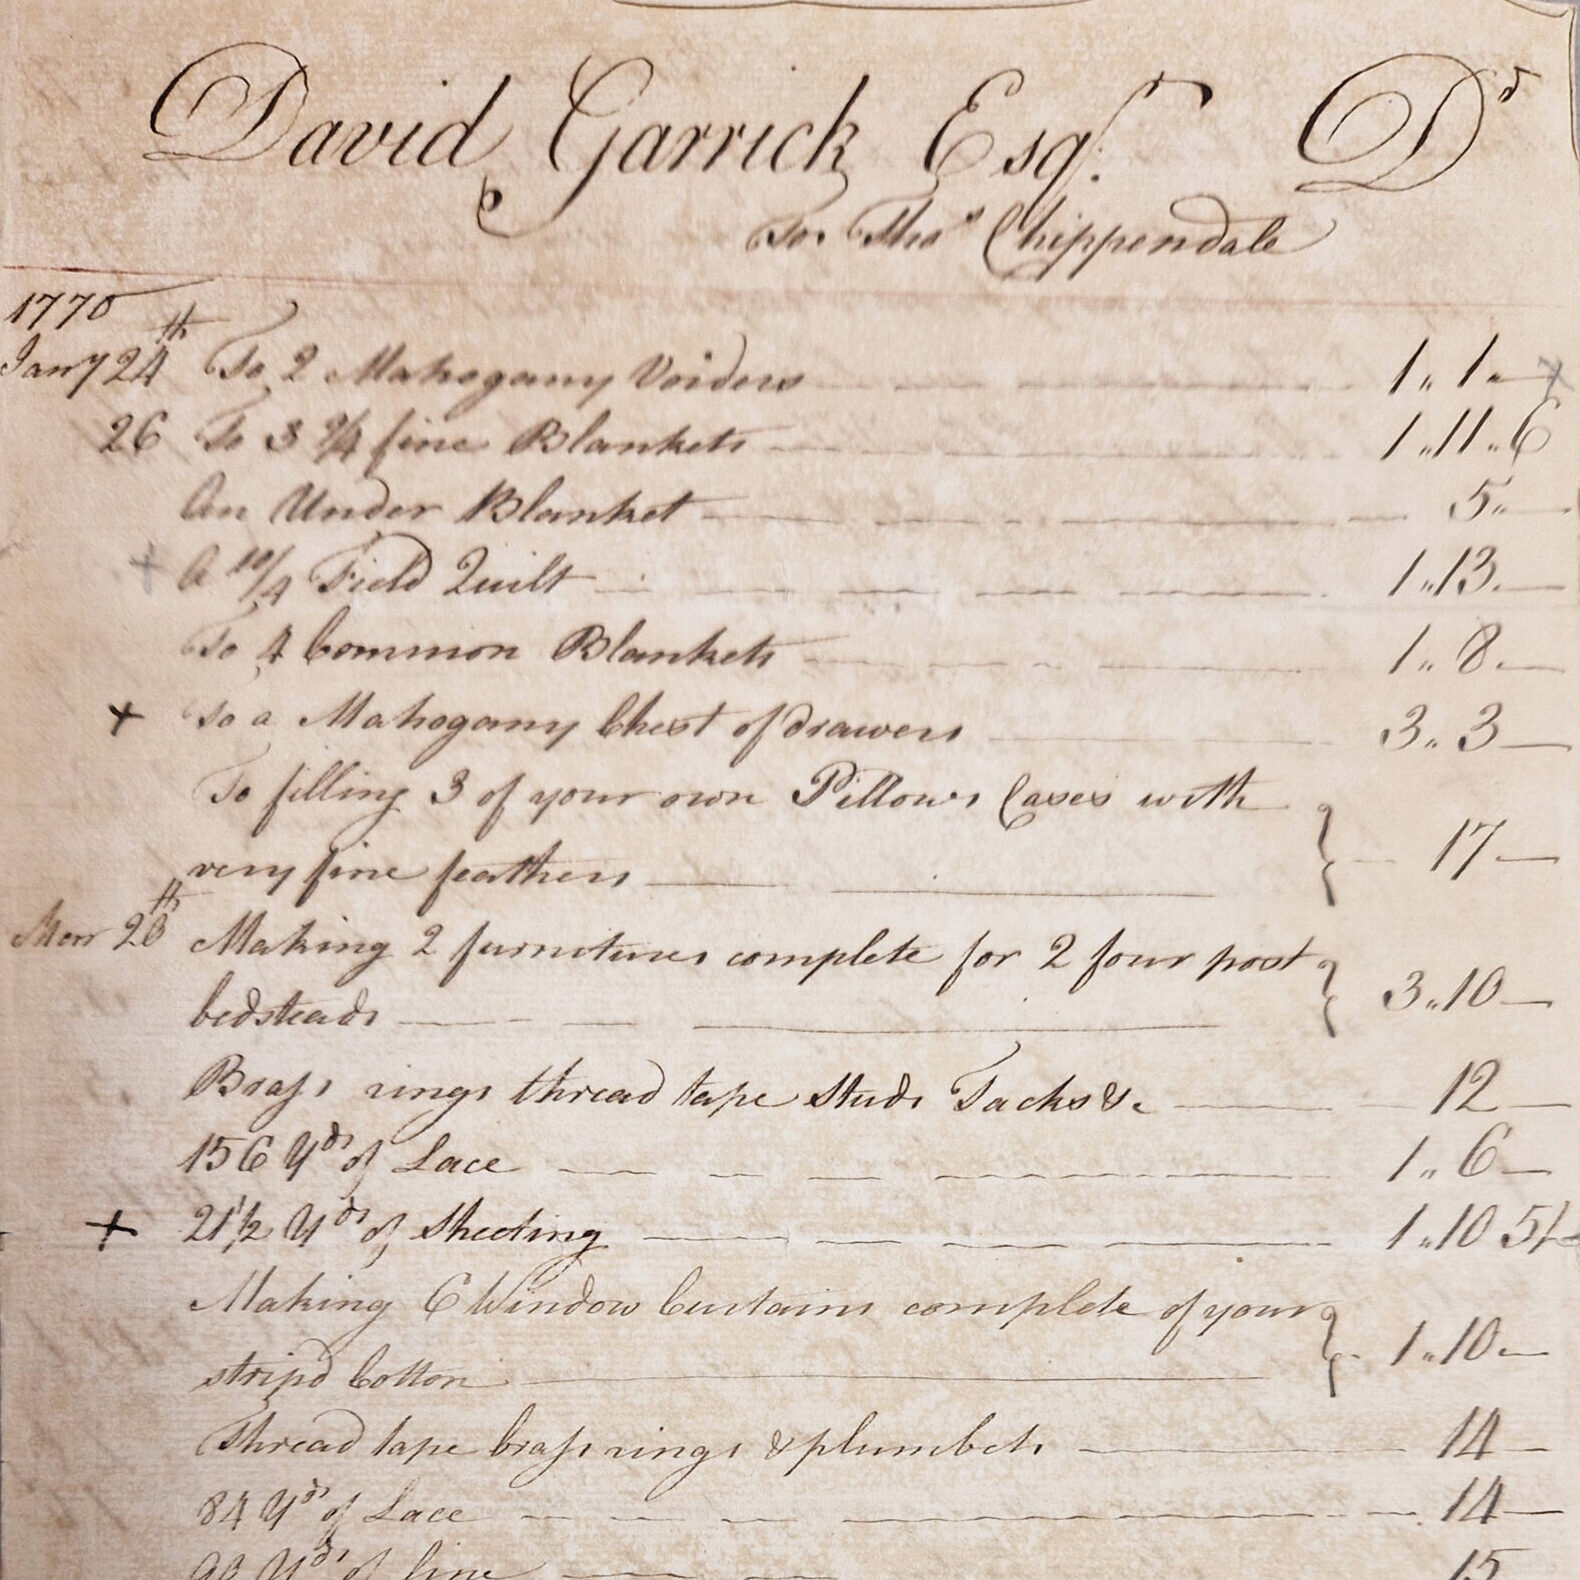 David Garrick Esqr. Dr
To. Thos Chippendale
1770
Jany 24th To 2 Mahogany Voiders 1,, 1,, —
26 To 3 9/4 fine Blankets 1,, 11,, 6
An Under Blanket 5,, —
A 10/4 Field Quilt 1,, 13. —
To 4 Common Blankets 1,, 8. —
+ To a Mahogany Chest of drawers 3,, 3 —
To filling 3 of your own Pillows Cases with
very fine feathers 17 —
28th Making 2 furnitures complete for 2 four post
bedsteads 3,, 10 —
Brass rings thread tape Studs Tacks &c 12 —
156 Yds of Lace 1,, 6 —
+ 21 1/2 Yds of Sheeting 1,, 10 5
Making 6 Window Curtains complete of your
stripd Cotton 1,, 10. —
Thread tape brass rings & plumbets 14 —
84 Yds of Lace 14 —
Yds of line 15